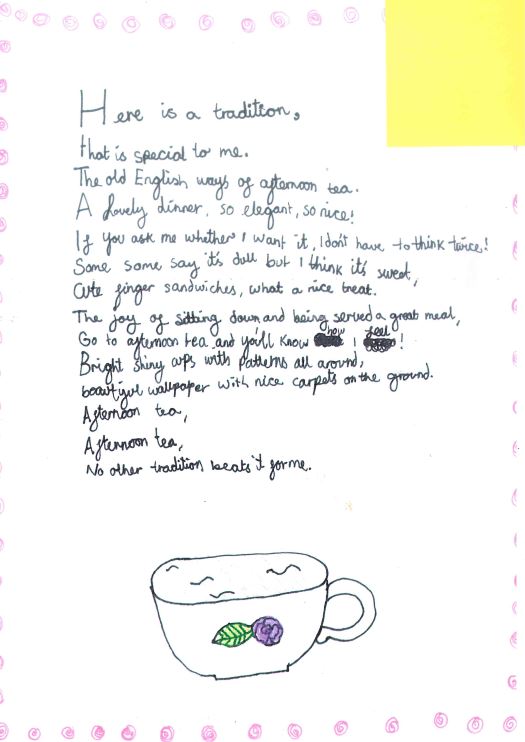 Here is a tradition,
that is special to me.
The old English ways of afternoon tea.
A lovely dinner, so elegant, so nice!
If you ask me whether I want it, I don't have to think twice!
Some some say it's dull but I think it's sweet,
Cute finger sandwiches, what a nice treat.
The joy of sitting down and being served a great meal,
Go to afternoon tea and you'll know how I feel!
Bright shiny cups with patterns all around,
beautiful wallpaper with nice carpets on the ground.
Afternoon tea,
Afternoon tea,
No other tradition beats it for me.